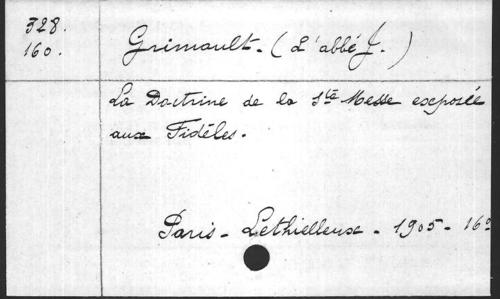 328.
160.
Grimault. (L'abbé J.)
La Doctrine de la Ste Messe exposée
aux Fidèles.
Paris - Lethielleux - 1905 - 16º